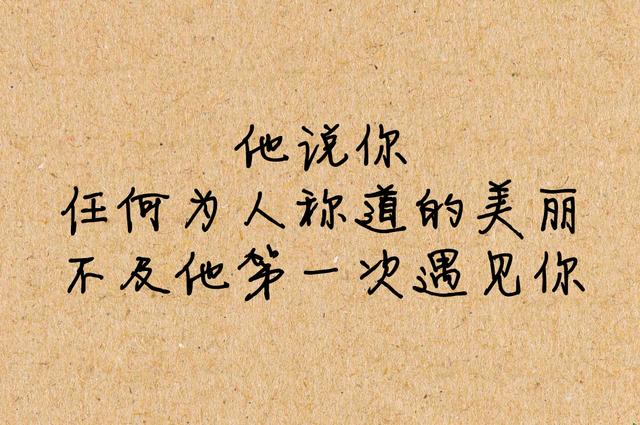 他说你
任何为人称道的美丽
不及他第一次遇见你